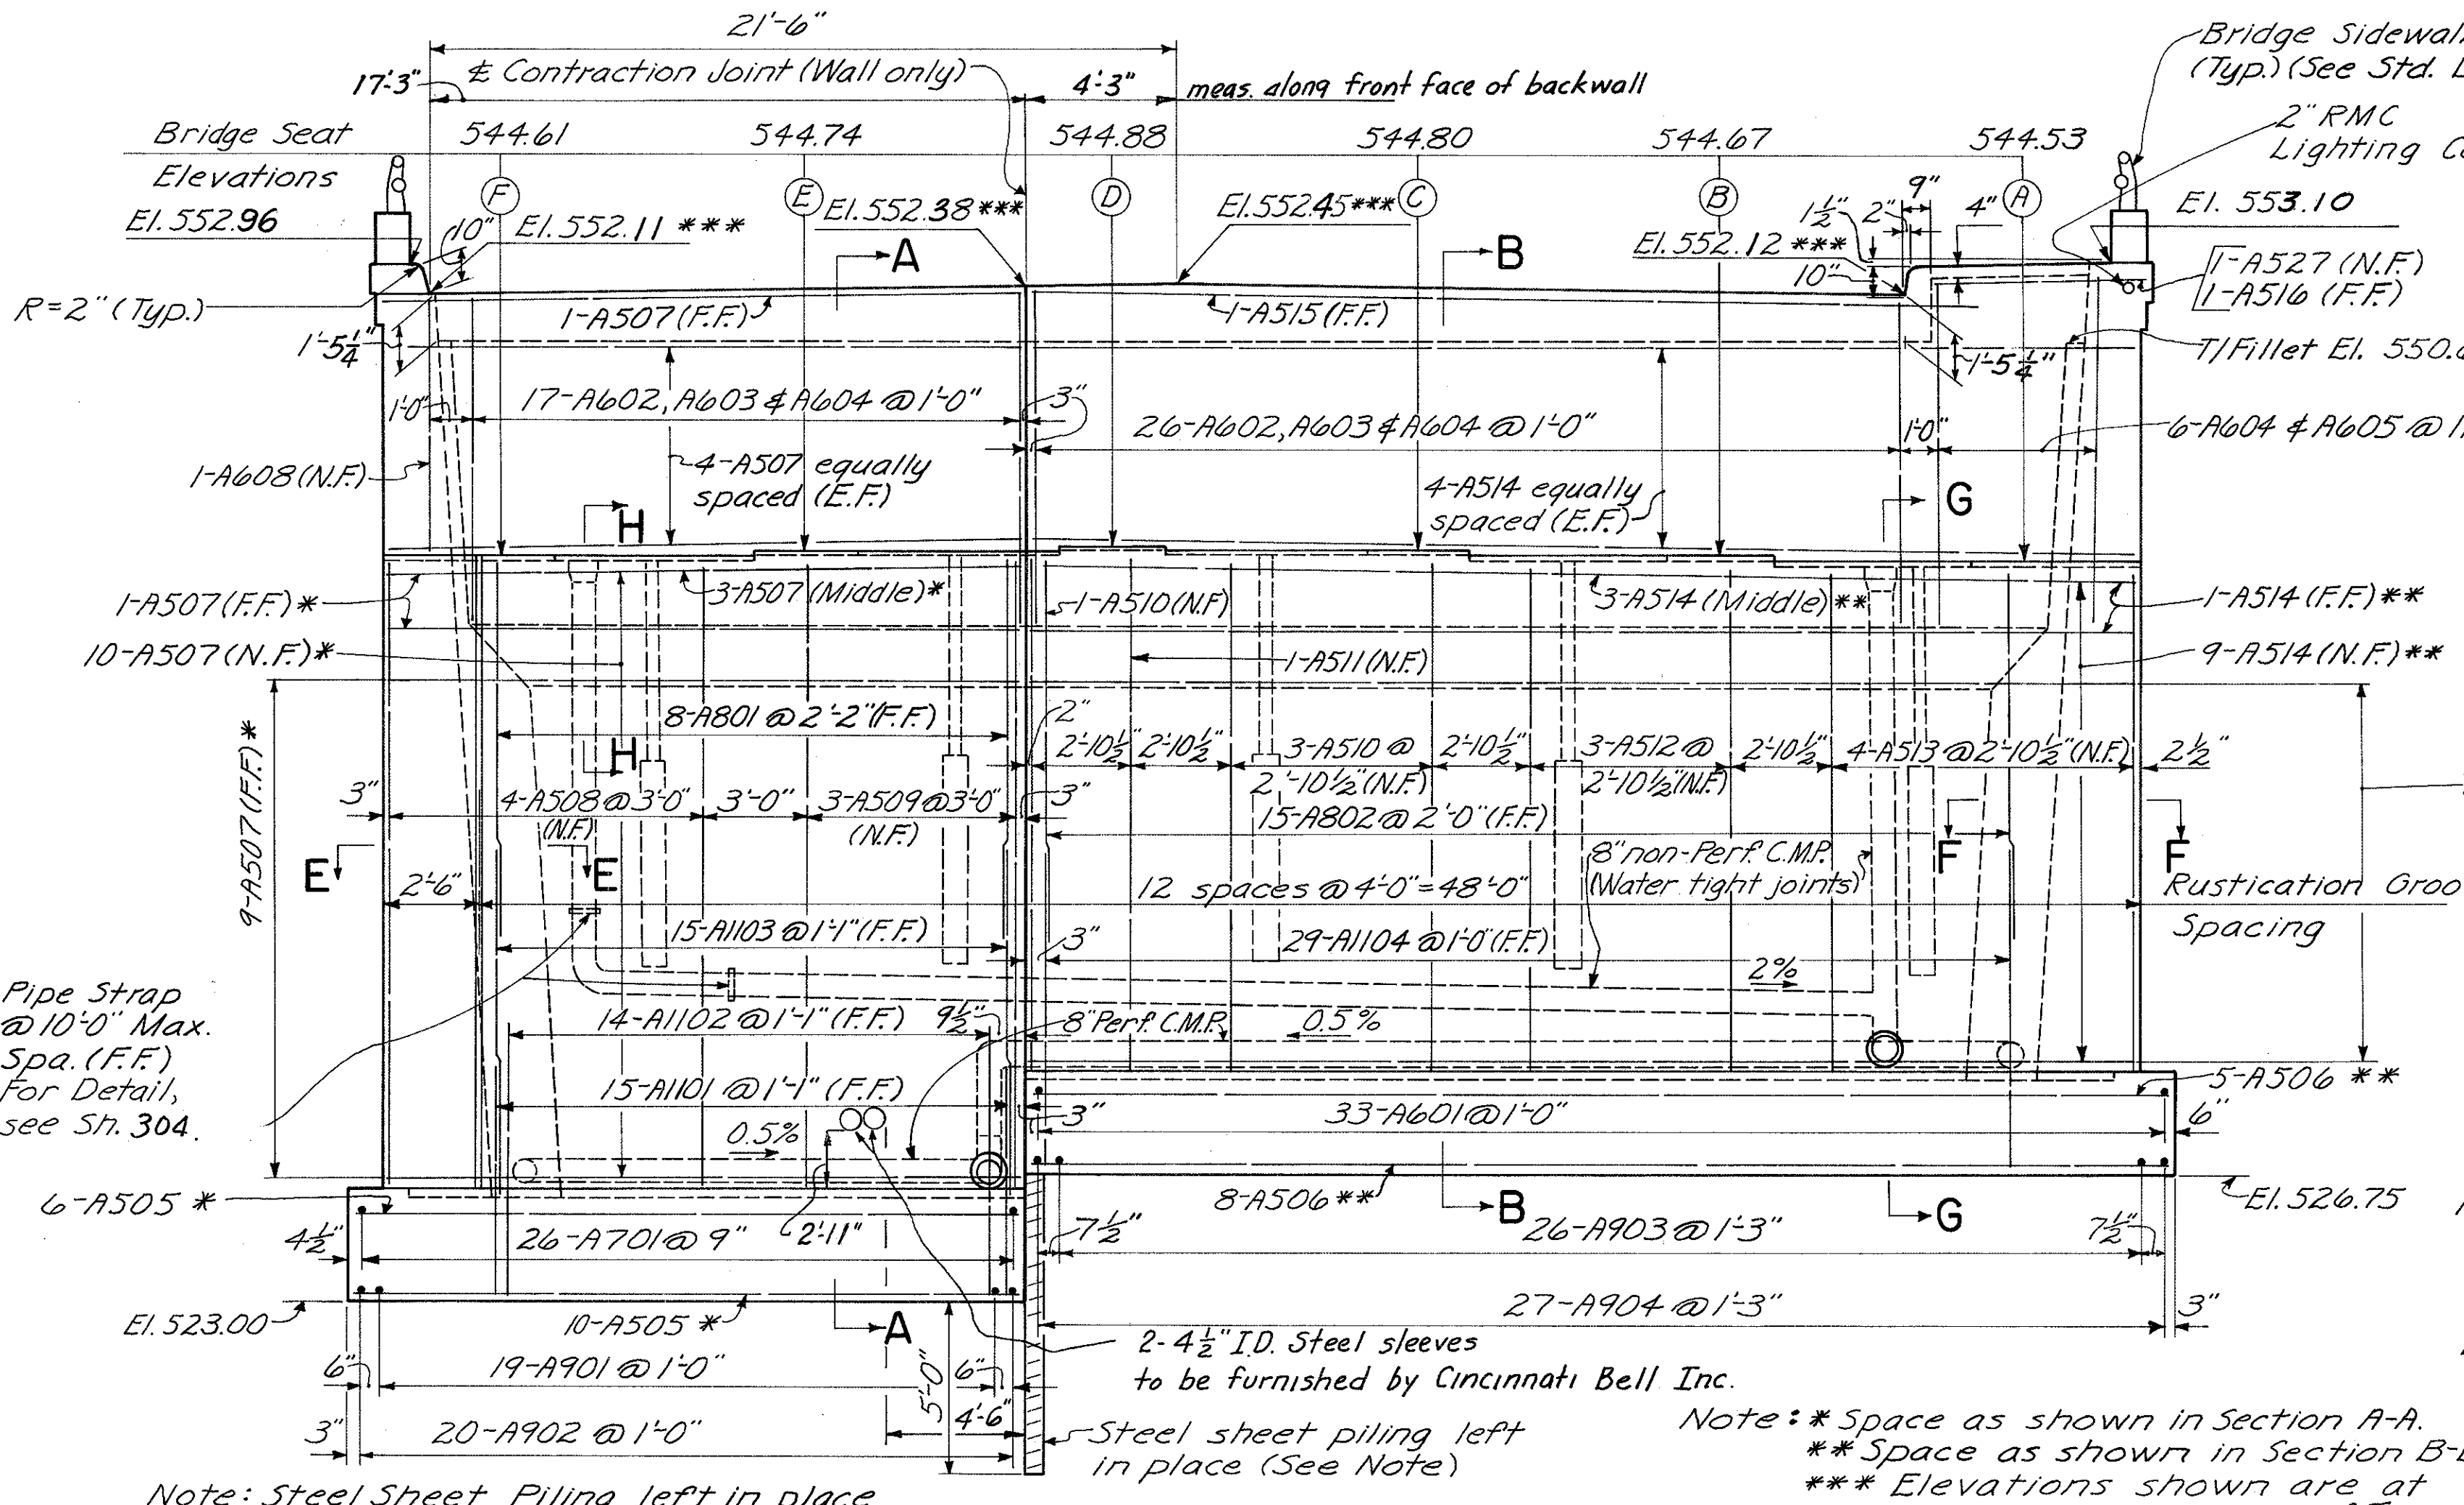 21'-6"
Bridge Sidewal
(Typ.) (See Std. D
17'-3"
₵ Contraction Joint (Wall only)
4'-3"
meas. along front face of backwall
2" RMC
Lighting Co
Bridge Seat
Elevations
544.61
544.74
544.88
544.80
544.67
544.53
F
E
D
C
B
A
El. 552.96
10"
El. 552.11 ***
El. 552.38 ***
El. 552.45 ***
El. 552.12 ***
1½"
2"
9"
4"
10"
El. 553.10
A
B
R=2" (Typ.)
1-A507 (F.F.)
1-A515 (F.F.)
1-A527 (N.F.)
1-A516 (F.F.)
1'-5¼"
1'-5¼"
T/Fillet El. 550.
1'-0"
17-A602, A603 & A604 @ 1'-0"
3"
26-A602, A603 & A604 @ 1'-0"
1'-0"
6-A604 & A605 @ 1
1-A608 (N.F.)
4-A507 equally
spaced (E.F.)
4-A514 equally
spaced (E.F.)
H
G
1-A507 (F.F.) *
3-A507 (Middle) *
1-A510 (N.F)
3-A514 (Middle) **
1-A514 (F.F.) **
10-A507 (N.F.) *
1-A511 (N.F.)
9-A514 (N.F.) **
9-A507 (F.F.) *
8-A801 @ 2'-2" (F.F.)
2"
H
2'-10½"
2'-10½"
3-A510 @
2'-10½" (N.F.)
2'-10½"
3-A512 @
2'-10½" (N.F.)
2'-10½"
4-A513 @ 2'-10½" (N.F.)
2½"
3"
4-A508 @ 3'-0"
(N.F.)
3'-0"
3-A509 @ 3'-0"
(N.F.)
3"
15-A802 @ 2'-0" (F.F.)
E
E
8" non-Perf. C.M.P.
(Water tight joints)
F
F
2'-6"
12 spaces @ 4'-0" = 48'-0"
Rustication Groo
Spacing
15-A1103 @ 1'-1" (F.F.)
3"
29-A1104 @ 1'-0" (F.F.)
2%
Pipe Strap
@ 10'-0" Max.
Spa. (F.F.)
For Detail,
see Sh. 304.
14-A1102 @ 1'-1" (F.F.)
9½"
8" Perf. C.M.P.
0.5%
15-A1101 @ 1'-1" (F.F.)
3"
33-A601 @ 1'-0"
5-A506 **
6"
0.5%
6-A505 *
8-A506 **
B
G
El. 526.75
4½"
26-A701 @ 9"
2'-11"
7½"
26-A903 @ 1'-3"
7½"
El. 523.00
10-A505 *
A
27-A904 @ 1'-3"
3"
2- 4½" I.D. Steel sleeves
to be furnished by Cincinnati Bell Inc.
6"
19-A901 @ 1'-0"
6"
5'-0"
3"
20-A902 @ 1'-0"
4'-6"
Steel sheet piling left
in place (See Note)
Note: * Space as shown in Section A-A.
** Space as shown in Section B-B
*** Elevations shown are at
Note: Steel Sheet Piling left in place